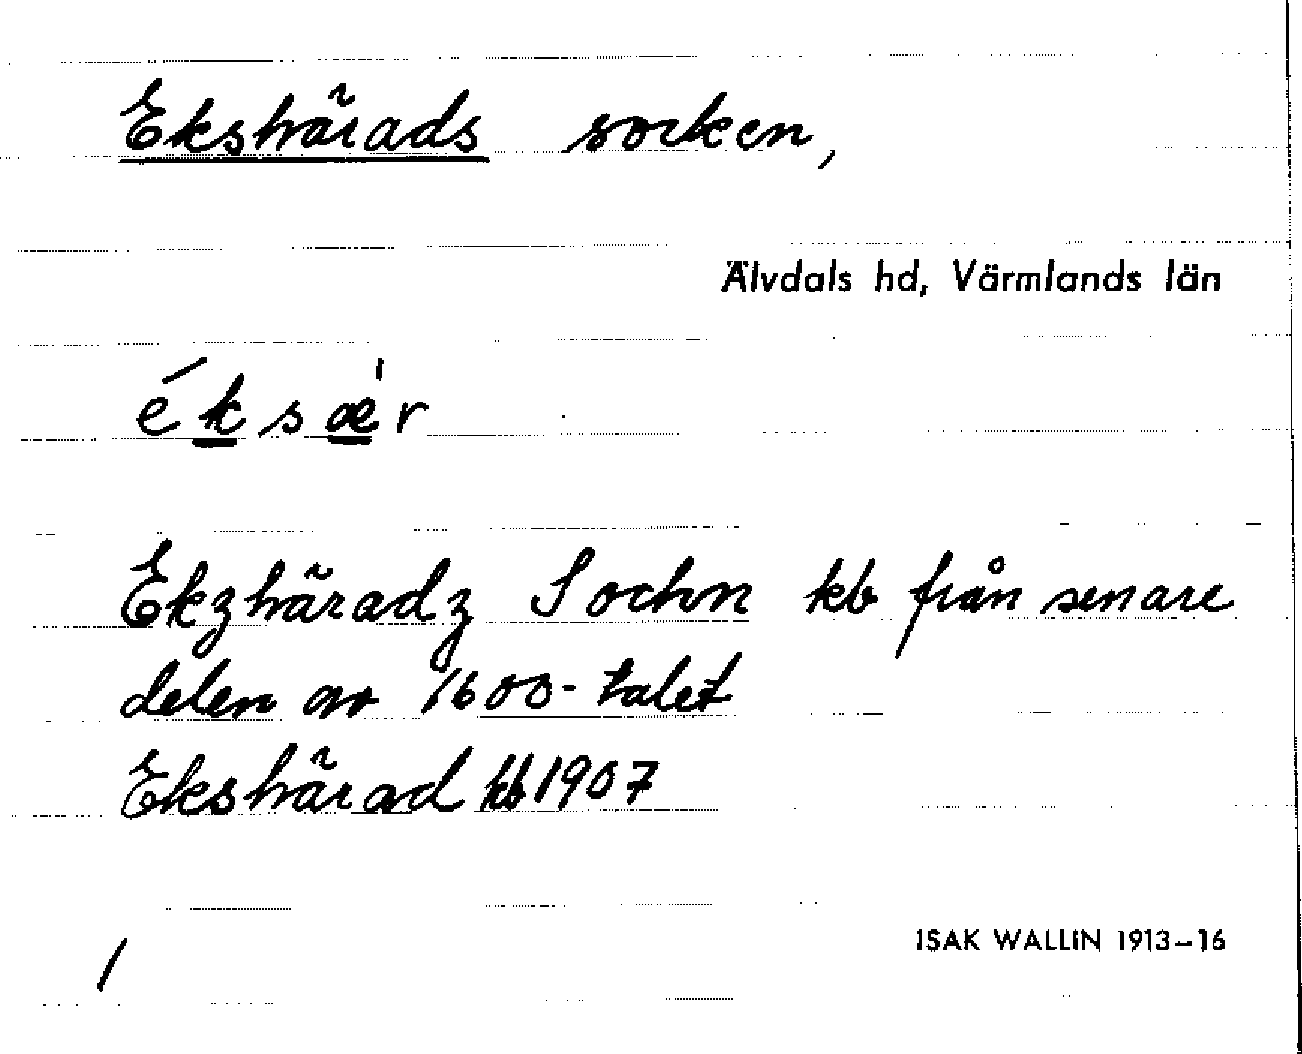 Ekshärads socken,
Älvdals hd, Värmlands län
éksæ'r
Ekzhäradz Sochn kb från senare
delen av 1600-talet
Ekshärad kb 1907
ISAK WALLIN 1913–16
/